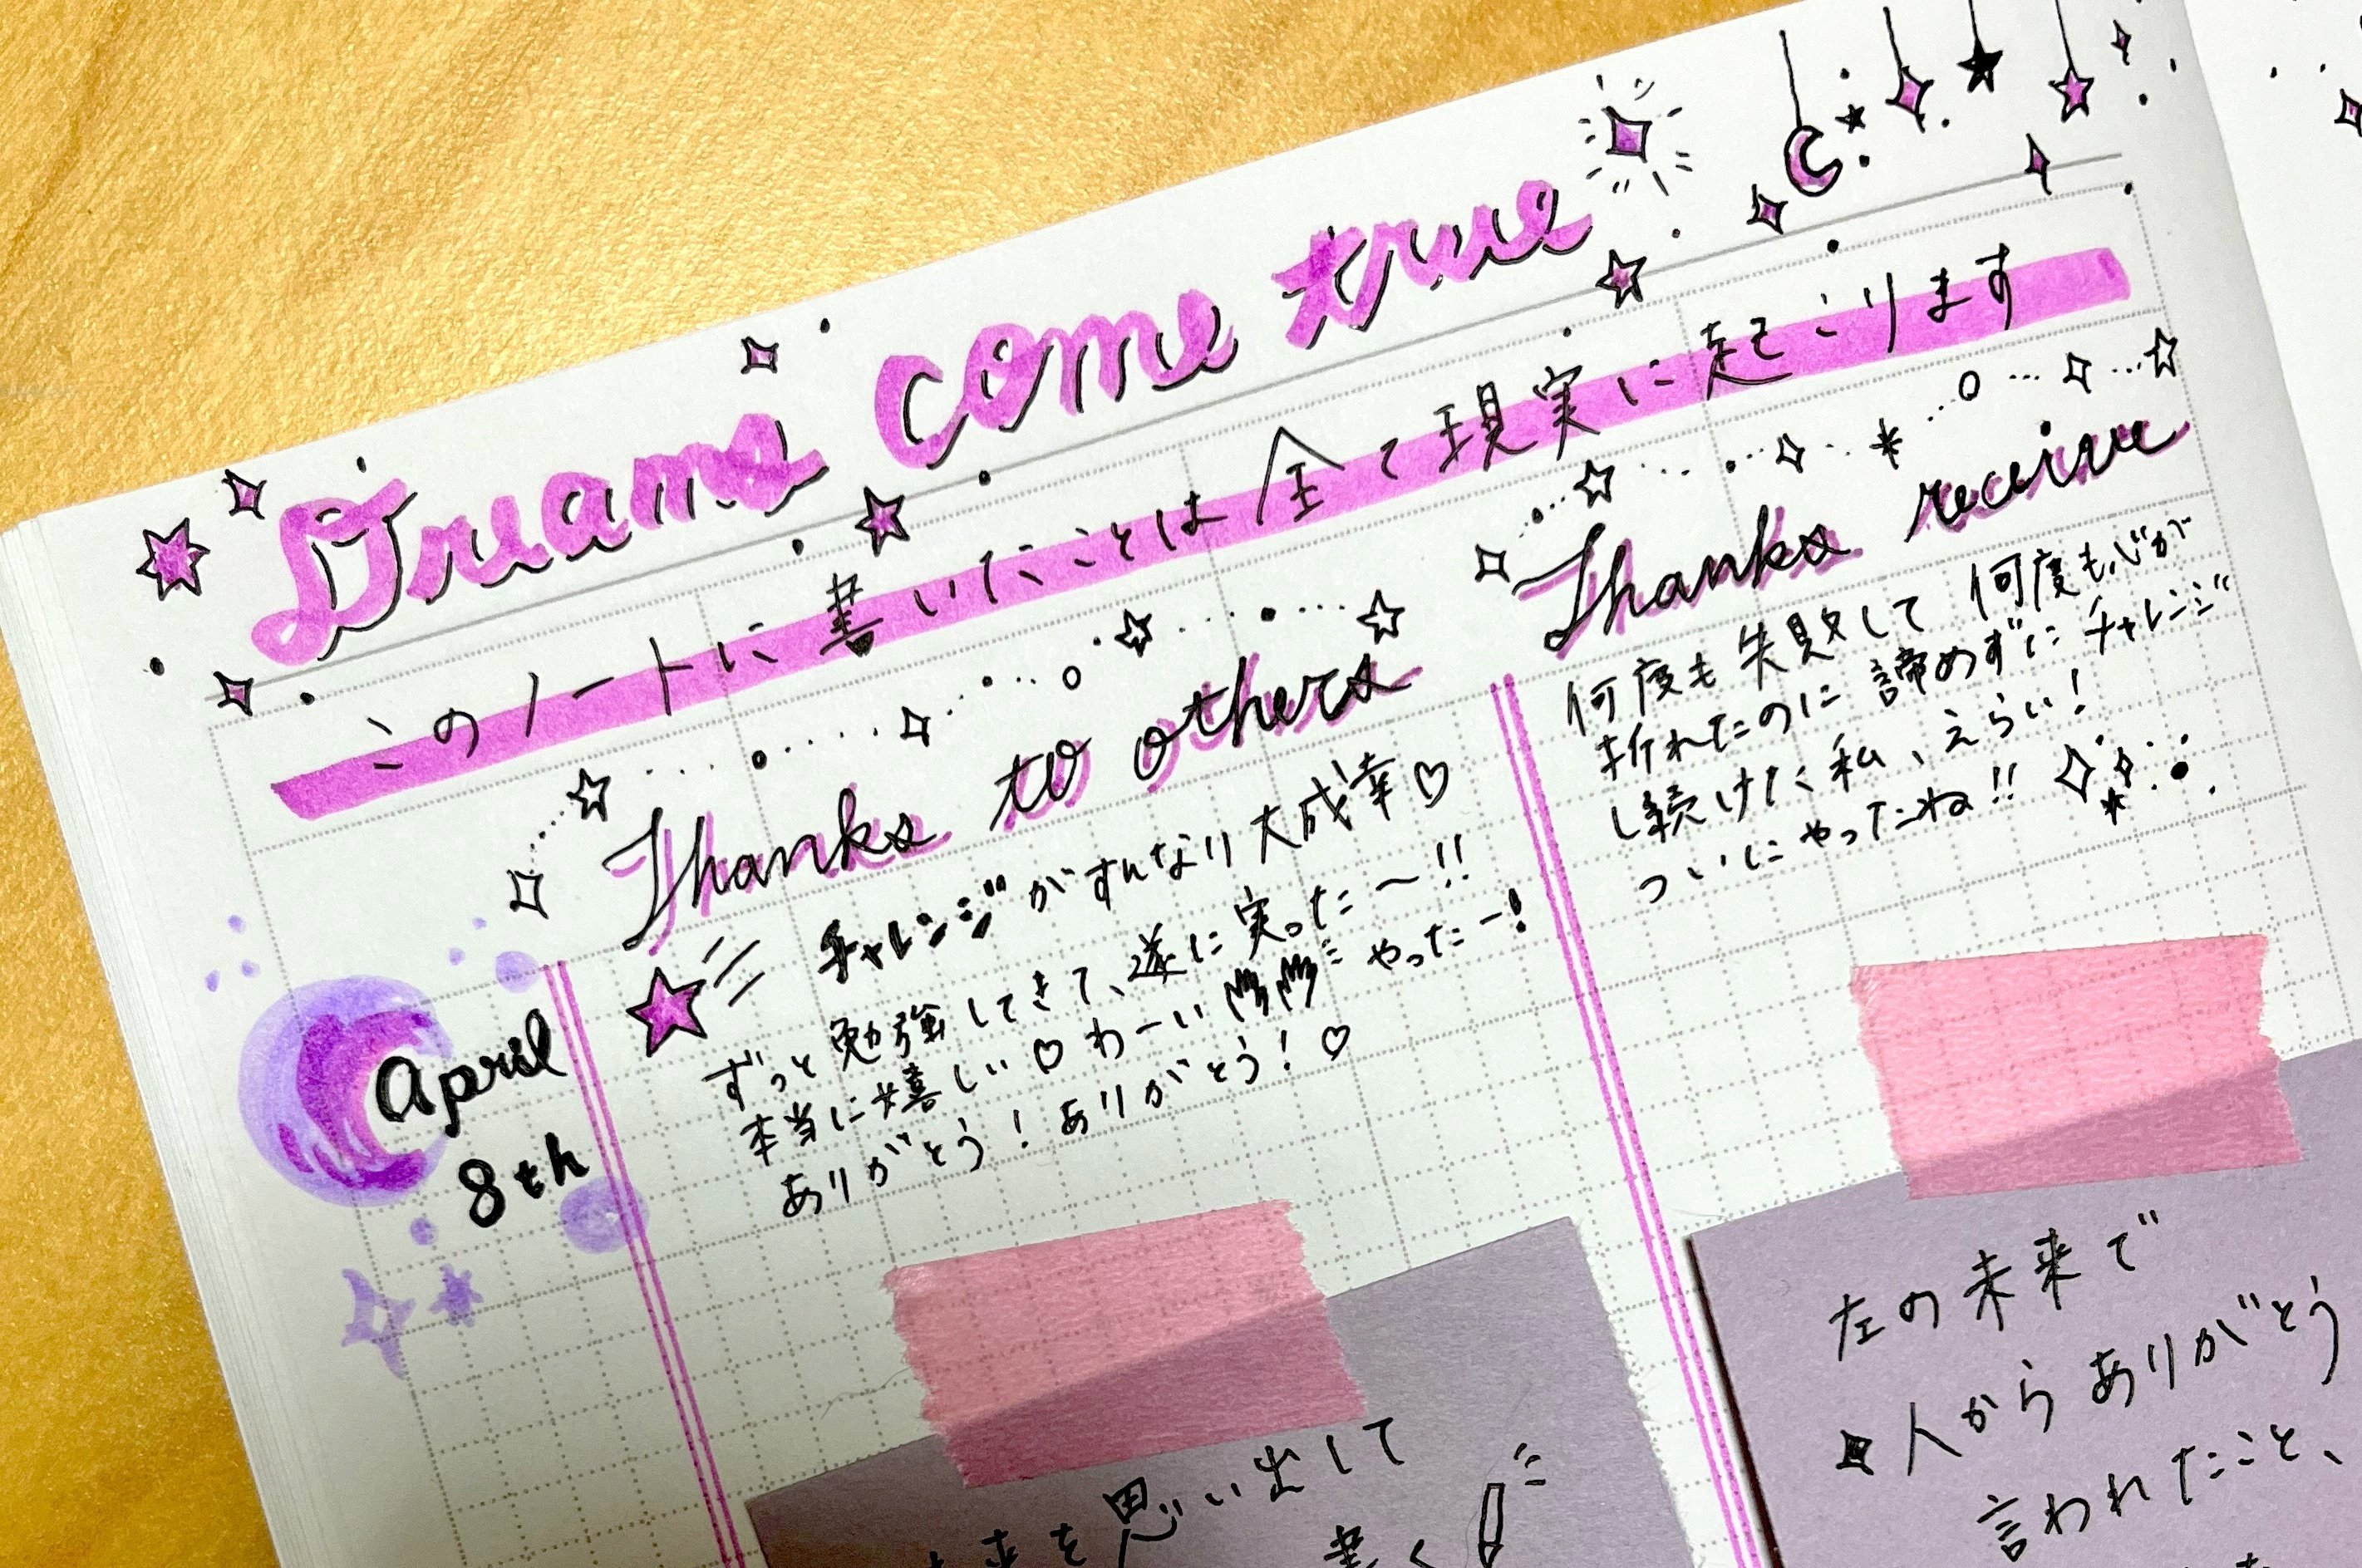 Dreams come true
このノートに書いたことは全て現実に起こります
Thanks to others
チャレンジがすんなり大成幸♡
ずっと勉強してきて、遂に実った〜!!
本当に嬉しい♡わーい やったー!
ありがとう！ありがとう！♡
Thanks receive
何度も失敗して 何度も心が
折れたのに諦めずにチャレンジ
し続けた私、えらい！
ついにやったね!!
April
8th
来を思い出して
書く
左の未来で
人からありがとう
言われたこと、